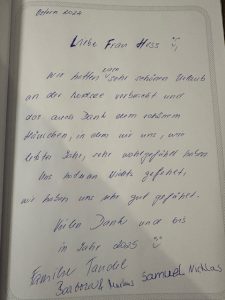 Ostern 2024
Liebe Frau Hess
Wir hatten einen sehr schönen Urlaub
an der Nordsee verbracht und
das auch Dank dem schönen
Häuschen, in dem wir uns, wie
letztes Jahr, sehr wohlgefühlt haben
Uns hat an Nichts gefehlt,
wir haben uns sehr gut gefühlt.
Vielen Dank und bis
in Jahr 2025
Familie
Samuel Nicklas